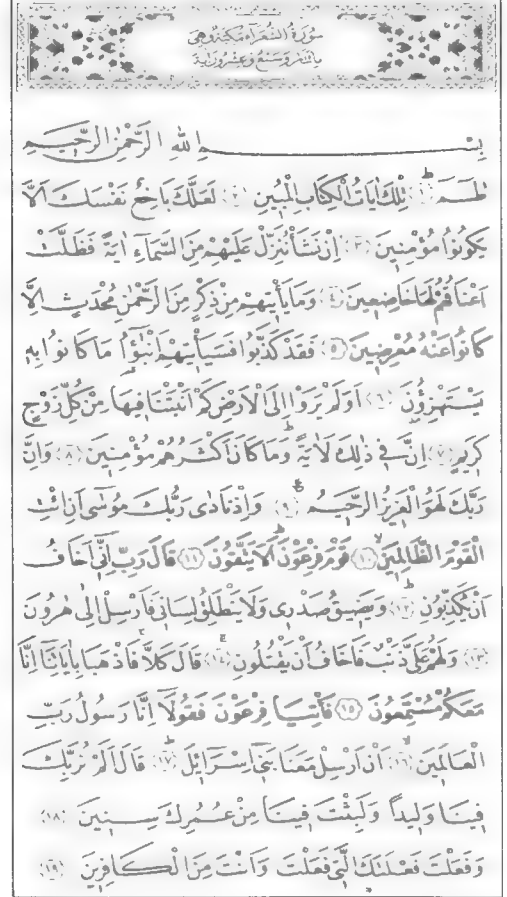 سُورَةُ الشُّعَرَاءِ مَكِّيَّةٌ وَهِيَ
مِائَتَانِ وَسَبْعٌ وَعِشْرُونَ اٰيَةً
بِسْمِ اللّٰهِ الرَّحْمٰنِ الرَّحِيمِ
طٰسٓمٓ ﴿١﴾ تِلْكَ اٰيَاتُ الْكِتَابِ الْمُبِينِ ﴿٢﴾ لَعَلَّكَ بَاخِعٌ نَفْسَكَ اَلَّا
يَكُونُوا مُؤْمِنِينَ ﴿٣﴾ اِنْ نَشَأْ نُنَزِّلْ عَلَيْهِمْ مِنَ السَّمَٓاءِ اٰيَةً فَظَلَّتْ
اَعْنَاقُهُمْ لَهَا خَاضِعِينَ ﴿٤﴾ وَمَا يَأْتِيهِمْ مِنْ ذِكْرٍ مِنَ الرَّحْمٰنِ مُحْدَثٍ اِلَّا
كَانُوا عَنْهُ مُعْرِضِينَ ﴿٥﴾ فَقَدْ كَذَّبُوا فَسَيَأْتِيهِمْ اَنْبٰٓؤُ۬ا مَا كَانُوا بِهِ
يَسْتَهْزِؤُنَ ﴿٦﴾ اَوَلَمْ يَرَوْا اِلَى الْاَرْضِ كَمْ اَنْبَتْنَا فِيهَا مِنْ كُلِّ زَوْجٍ
كَرِيمٍ ﴿٧﴾ اِنَّ فِي ذٰلِكَ لَاٰيَةً وَمَا كَانَ اَكْثَرُهُمْ مُؤْمِنِينَ ﴿٨﴾ وَاِنَّ
رَبَّكَ لَهُوَ الْعَزِيزُ الرَّحِيمُ ﴿٩﴾ وَاِذْ نَادٰى رَبُّكَ مُوسٰٓى اَنِ ائْتِ
الْقَوْمَ الظَّالِمِينَ ﴿١٠﴾ قَوْمَ فِرْعَوْنَ اَلَا يَتَّقُونَ ﴿١١﴾ قَالَ رَبِّ اِنِّٓي اَخَافُ
اَنْ يُكَذِّبُونِ ﴿١٢﴾ وَيَضِيقُ صَدْرِي وَلَا يَنْطَلِقُ لِسَانِي فَاَرْسِلْ اِلٰى هٰرُونَ
﴿١٣﴾ وَلَهُمْ عَلَيَّ ذَنْبٌ فَاَخَافُ اَنْ يَقْتُلُونِ ﴿١٤﴾ قَالَ كَلَّا فَاذْهَبَا بِاٰيَاتِنَٓا اِنَّا
مَعَكُمْ مُسْتَمِعُونَ ﴿١٥﴾ فَأْتِيَا فِرْعَوْنَ فَقُولَٓا اِنَّا رَسُولُ رَبِّ
الْعَالَمِينَ ﴿١٦﴾ اَنْ اَرْسِلْ مَعَنَا بَنِٓي اِسْرَٓائِلَ ﴿١٧﴾ قَالَ اَلَمْ نُرَبِّكَ
فِينَا وَلِيداً وَلَبِثْتَ فِينَا مِنْ عُمُرِكَ سِنِينَ ﴿١٨﴾
وَفَعَلْتَ فَعْلَتَكَ الَّتِي فَعَلْتَ وَاَنْتَ مِنَ الْكَافِرِينَ ﴿١٩﴾